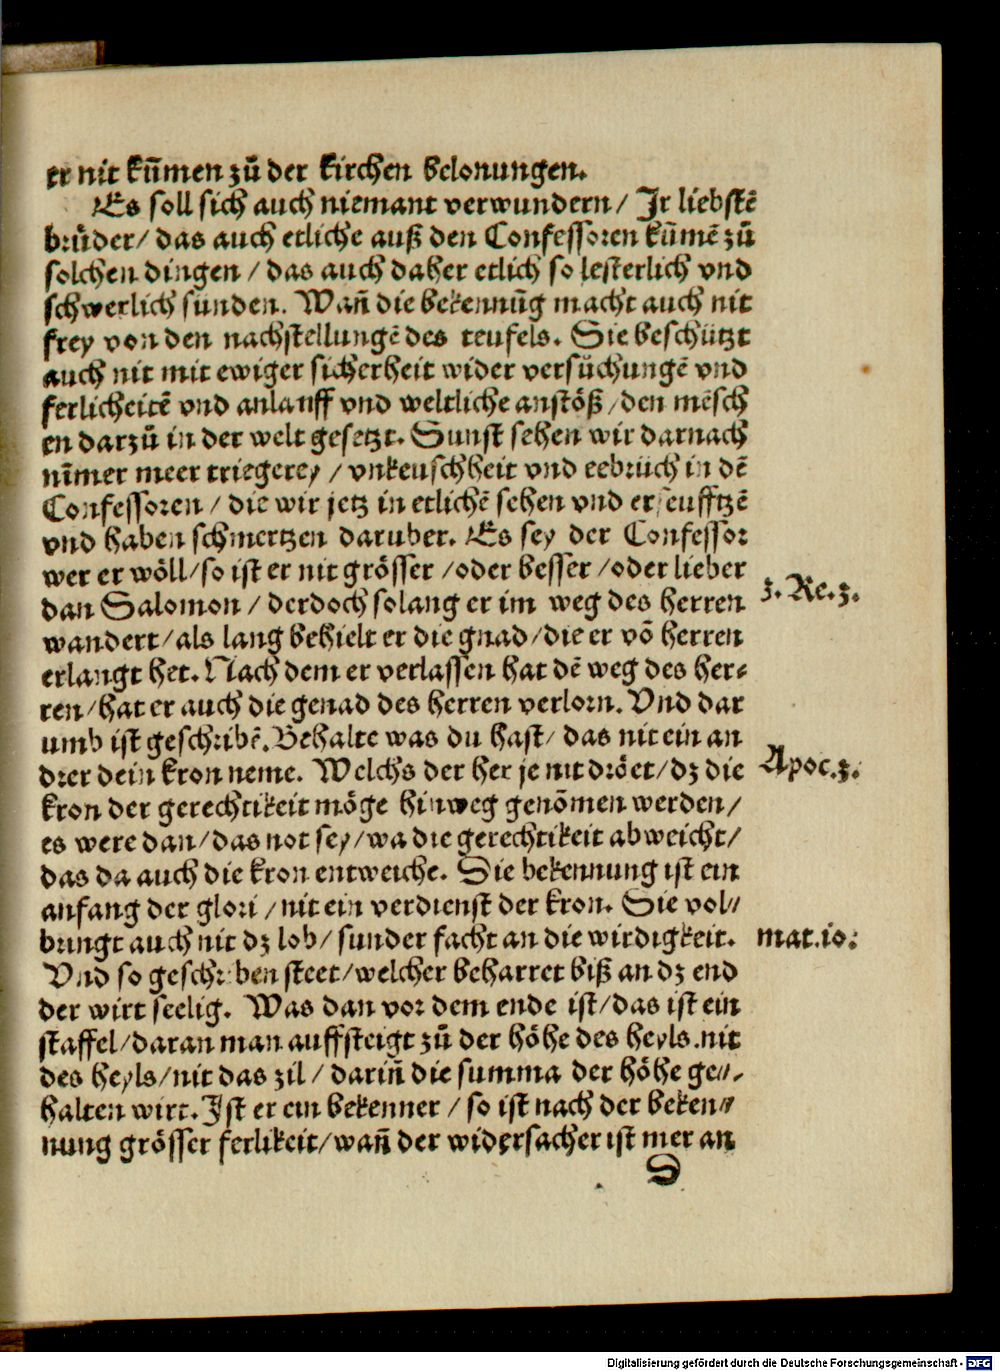 er nit kum̃en zů der kirchen belonungen.
Es soll sich auch niemant verwundern / Jr liebstẽ
brůder / das auch etliche auß den Confessoren kũmẽ zů
solchen dingen / das auch daher etlich so lesterlich vnd
schwerlich sünden. Wañ die bekennũg macht auch nit
frey von den nachstellungẽ des teufels. Sie beschützt
auch nit mit ewiger sicherheit wider versůchungẽ vnd
ferlicheitẽ vnd anlauff vnd weltliche anstöß / den mẽsch
en darzů in der welt gesetzt. Sunst sehen wir darnach
nim̃er meer triegerey / vnkeuschheit vnd eebrüch in dẽ
Confessoren / die wir jetz in etlichẽ sehen vnd erseufftzẽ
vnd haben schmertzen daruber. Es sey der Confessor
wer er wöll / so ist er nit grösser / oder besser / oder lieber
dan Salomon / der doch solang er im weg des herren
3. Re. 3.
wandert / als lang behielt er die gnad / die er võ herren
erlangt het. Nach dem er verlassen hat dẽ weg des her⸗
ren / hat er auch die genad des herren verlorn. Vnd dar
umb ist geschribẽ. Behalte was du hast / das nit ein an
drer dein kron neme. Welchs der her je nit dröet / dz die
Apoc. 3.
kron der gerechtikeit möge hinweg genõmen werden /
es were dan / das not sey / wa die gerechtikeit abweicht /
das da auch die kron entweiche. Die bekennung ist ein
anfang der glori / nit ein verdienst der kron. Sie vol⸗
bringt auch nit dz lob / sunder facht an die wirdigkeit.
mat. 10.
Vnd so geschriben steet / welcher beharret biß an dz end
der wirt seelig. Was dan vor dem ende ist / das ist ein
staffel / daran man auffsteigt zů der höhe des heyls. nit
des heyls / nit das zil / dariñ die summa der höhe ge⸗
halten wirt. Ist er ein bekenner / so ist nach der beken⸗
nung grösser ferlikeit / wañ der widersacher ist mer an
D
Digitalisierung gefördert durch die Deutsche Forschungsgemeinschaft - DFG